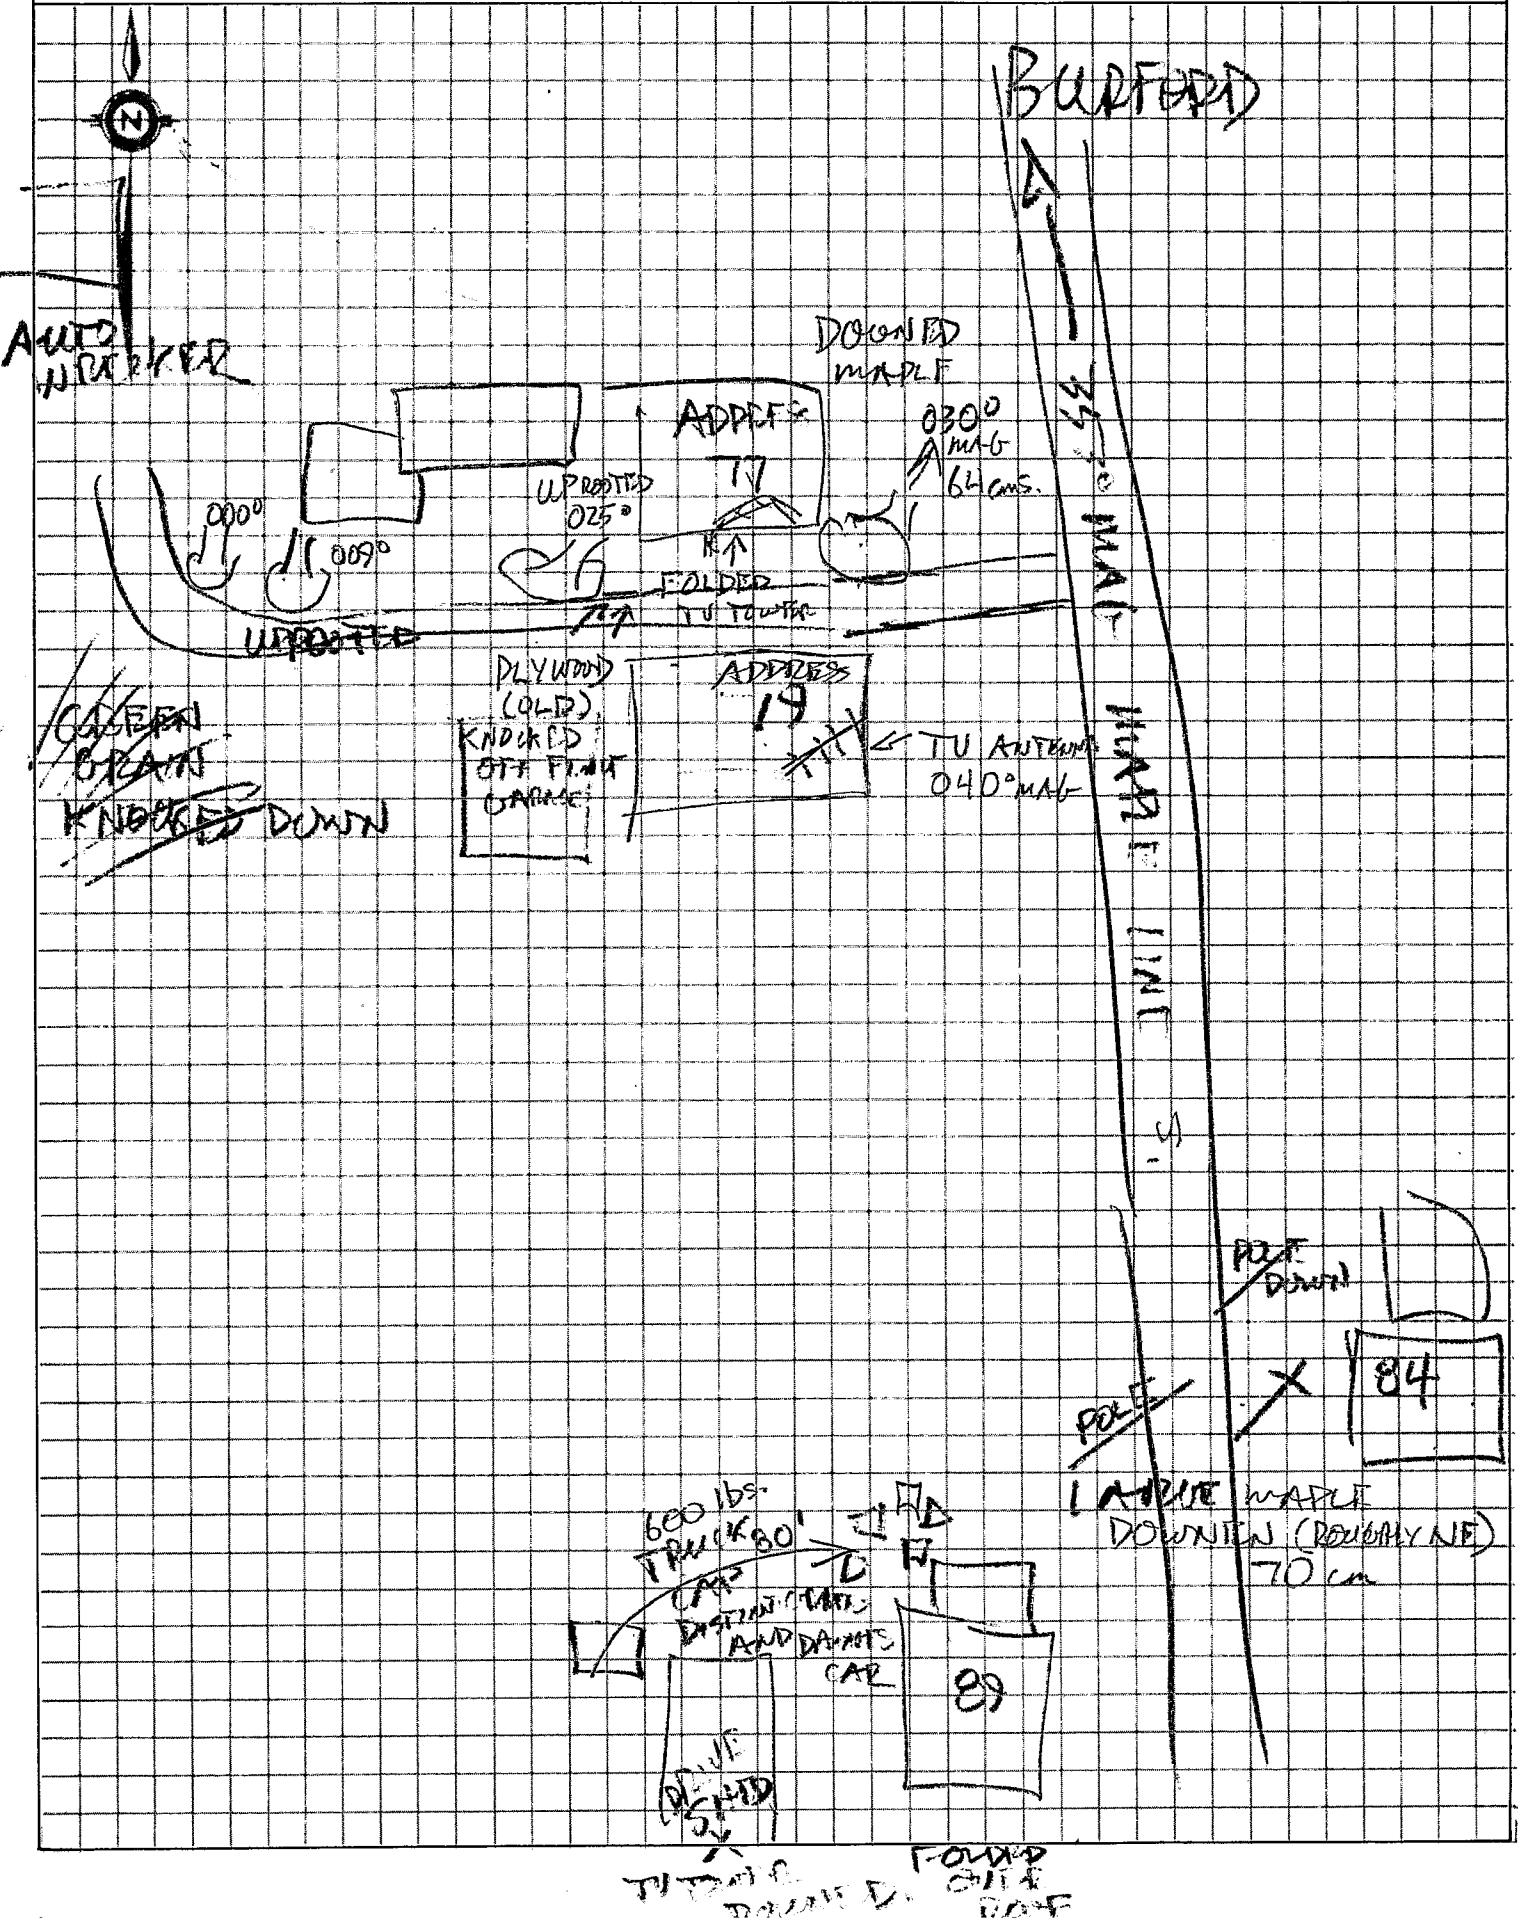 N
BURFORD
AUTO
WRECKER
DOWNED
MAPLE
030°
MAG
64 cms.
ADDRESS
77
UPROOTED
025°
000°
009°
FOLDED
TV TOWER
UPROOTED
MAG
MAPLE LINE
PLYWOOD
(OLD)
KNOCKED
OFF FRONT
GARAGE
ADDRESS
19
TV ANTENNA
040° MAG
GREEN
GRAIN
KNOCKED DOWN
POLE
DOWN
84
POLE
LARGE MAPLE
DOWN IN (ROUGHLY NE)
70 cm
600 lbs.
TRUCK 80'
CAP
DISINTEGRATES
AND DAMAGES
CAR
89
DRIVE
SHED
TV TOWER
DOWNED.
FOLDED
OVER
ROOF